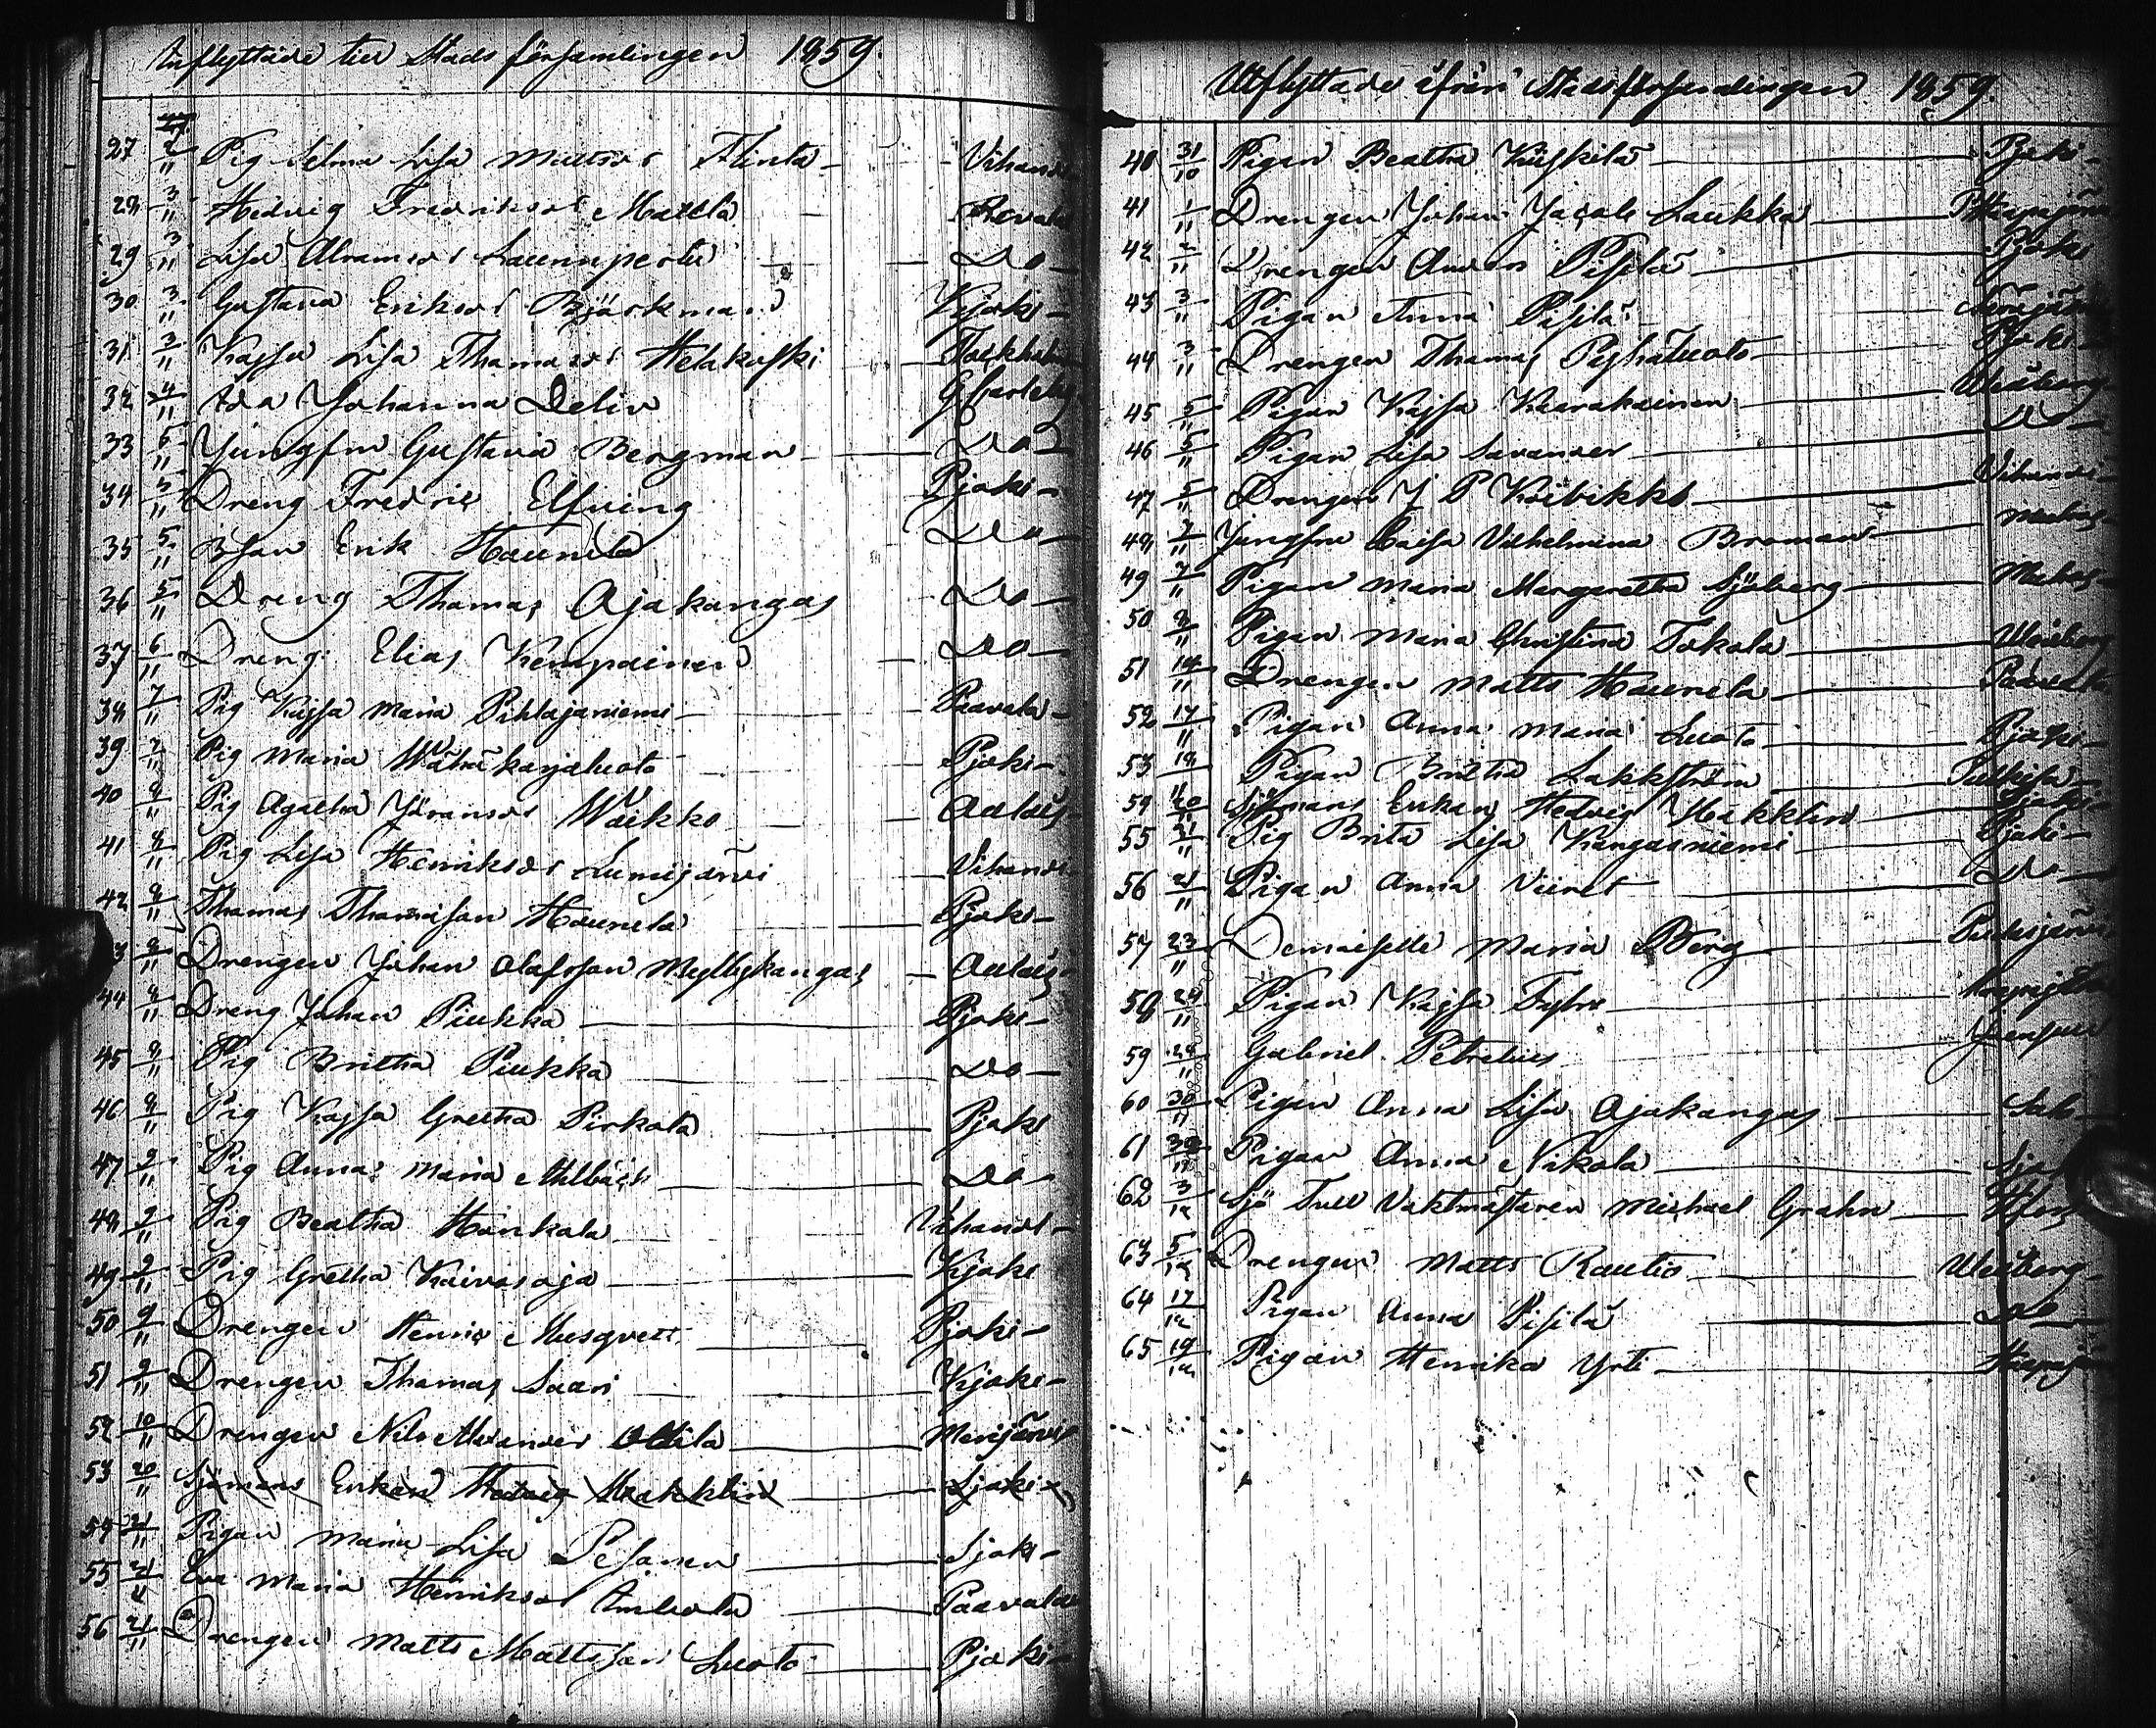 Inflyttade till Stads församlingen 1859.
27 2/11 Pig Selma Lisa Mattsdr Flinta Vihandi
28 3/11 Hedvig Fredriksdr Mattla Revala
29 3/11 Lisa Abramsdr Laurinperti Do
30 3/11 Gustava Eriksdr Björkman Kjoki
31 3/11 Kajsa Lisa Thomasdr Helakoski
32 4/11 Ida Johanna Delin GCarleby
33 5/11 Jungfru Gustava Bergman Do
34 5/11 Dreng Fredric Elfving Pjoki
35 5/11 Erik Haunela Do
36 5/11 Dreng Thomas Ajakangas Do
37 6/11 Dreng Elias Kempainen Do
38 7/11 Pig Kajsa Maria Pihlajaniemi Paavola
39 7/11 Pig Maria Wähäkarjaluoto Pjoki
40 8/11 Pig Agatha Göransdr Waikko
41 8/11 Pig Lisa Henriksdr Lumijärvi Vihandi
42 8/11 Thomas Thomasson Haunela Pjoki
43 8/11 Drengen Johan Olafsson Myllykangas
44 8/11 Dreng Johan Piukka Pjoki
45 9/11 Pig Britha Piukka Do
46 9/11 Pig Kajsa Gretha Pirkola Pjoki
47 9/11 Pig Anna Maria Ahlbäck Do
48 9/11 Pig Beatha Honkala Vihandi
49 9/11 Pig Gretha Kaivosoja Kjoki
50 9/11 Drengen Henric Musqvett Pjoki
51 9/11 Drengen Thomas Saari Kjoki
52 10/11 Drengen Nils Alexander Merijärvi
53 20/11 Sjömans Enkan Hedvig Makklin Sjoki
54 21/11 Pigan Maria Lisa Pesonen Sjoki
55 21/11 Eva Maria Henriksdr Paavola
56 21/11 Drengen Matts Mattsson Luoto Pjoki
Utflyttade ifrån Stadsförsamlingen 1859.
40 31/10 Pigan Beatha Kuiskila Pjoki
41 1/11 Drengen Johan Jacob Laukka Haapajärvi
42 2/11 Drengen Anders Pisilä Pjoki
43 3/11 Pigan Anna Pisilä
44 3/11 Drengen Thomas Pyhäluoto Pjoki
45 5/11 Pigan Kajsa Kaarakainen Uleåborg
46 5/11 Pigan Lisa Savander Do
47 5/11 Drengen J P Koivikko Vihandi
48 7/11 Jungfru Caisa Vilhelmina Broman
49 7/11 Pigan Maria Margaretha Sjöberg
50 8/11 Pigan Maria Christina Tokola Uleåborg
51 14/11 Drengen Matts Haunela Paavola
52 17/11 Pigan Anna Maria Luoto Pjoki
53 18/11 Pigan Britha Lakkström
54 20/11 Sjömans Enkan Hedvig Makklin Sjoki
55 21/11 Pig Brita Lisa Kangasniemi Pjoki
56 21/11 Pigan Anna Viiret Do
57 23/11 Demoiselle Maria Berg Pudasjärvi
58 24/11 Pigan Kajsa
59 28/11 Gabriel Petrelius
60 30/11 Pigan Anna Lisa Ajakangas Salo
61 30/11 Pigan Anna Nikola
62 3/12 Sjö Tull Vaktmästaren Michael Grahn Hfors
63 5/12 Drengen Matts Rautio Uleåborg
64 17/12 Pigan Anna Pisilä Do
65 19/12 Pigan Henrika Yrti